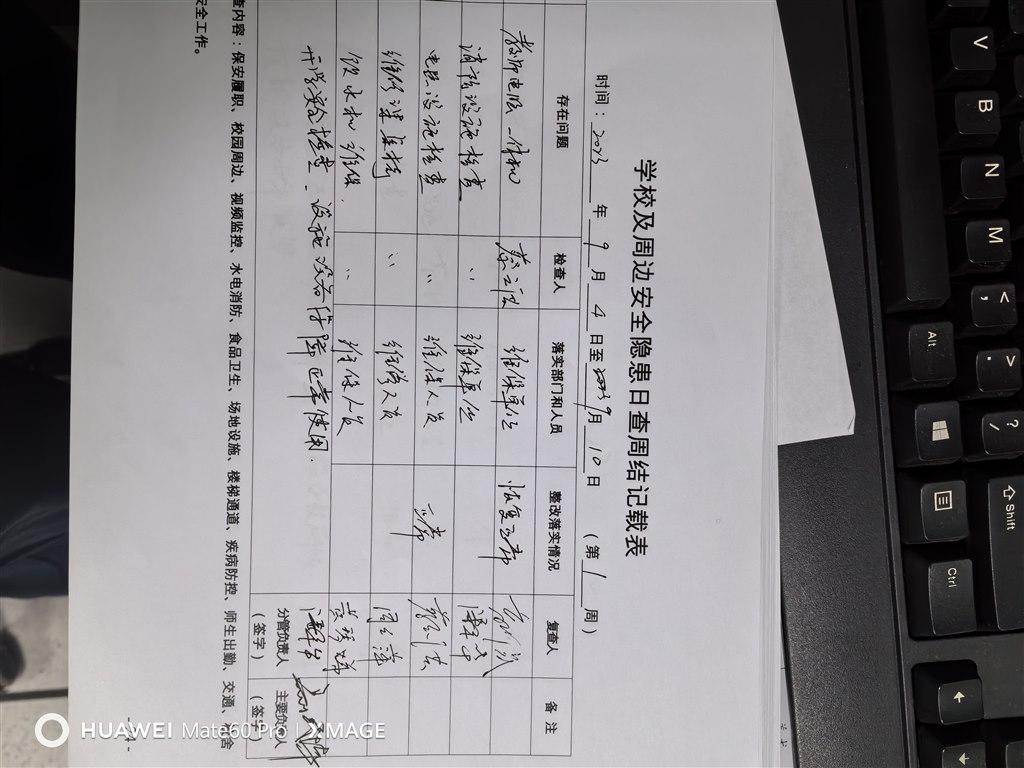 学校及周边安全隐患日查周结记载表
时间：2023年9月4日至2023年9月10日（第1周）
存在问题 检查人 落实部门和人员 整改落实情况 复查人 备注
教师电脑一体机 维保单位 恢复正常
消防设施检查 〃 维保单位
电器设施检查 〃 维保人员 正常
维修课桌椅 〃 维修人员
饮水机维保. 〃 维保人员
开学安全检查、设施没有故障正常使用.
分管负责人（签字）
主要负责人（签字）
查内容：保安履职、校园周边、视频监控、水电消防、食品卫生、场地设施、楼梯通道、疾病防控、师生出勤、交通、宿舍
安全工作。
V
B
N
M
< ,
> .
? /
Alt
Ctrl
⇧Shift
←
HUAWEI Mate60 Pro | XMAGE